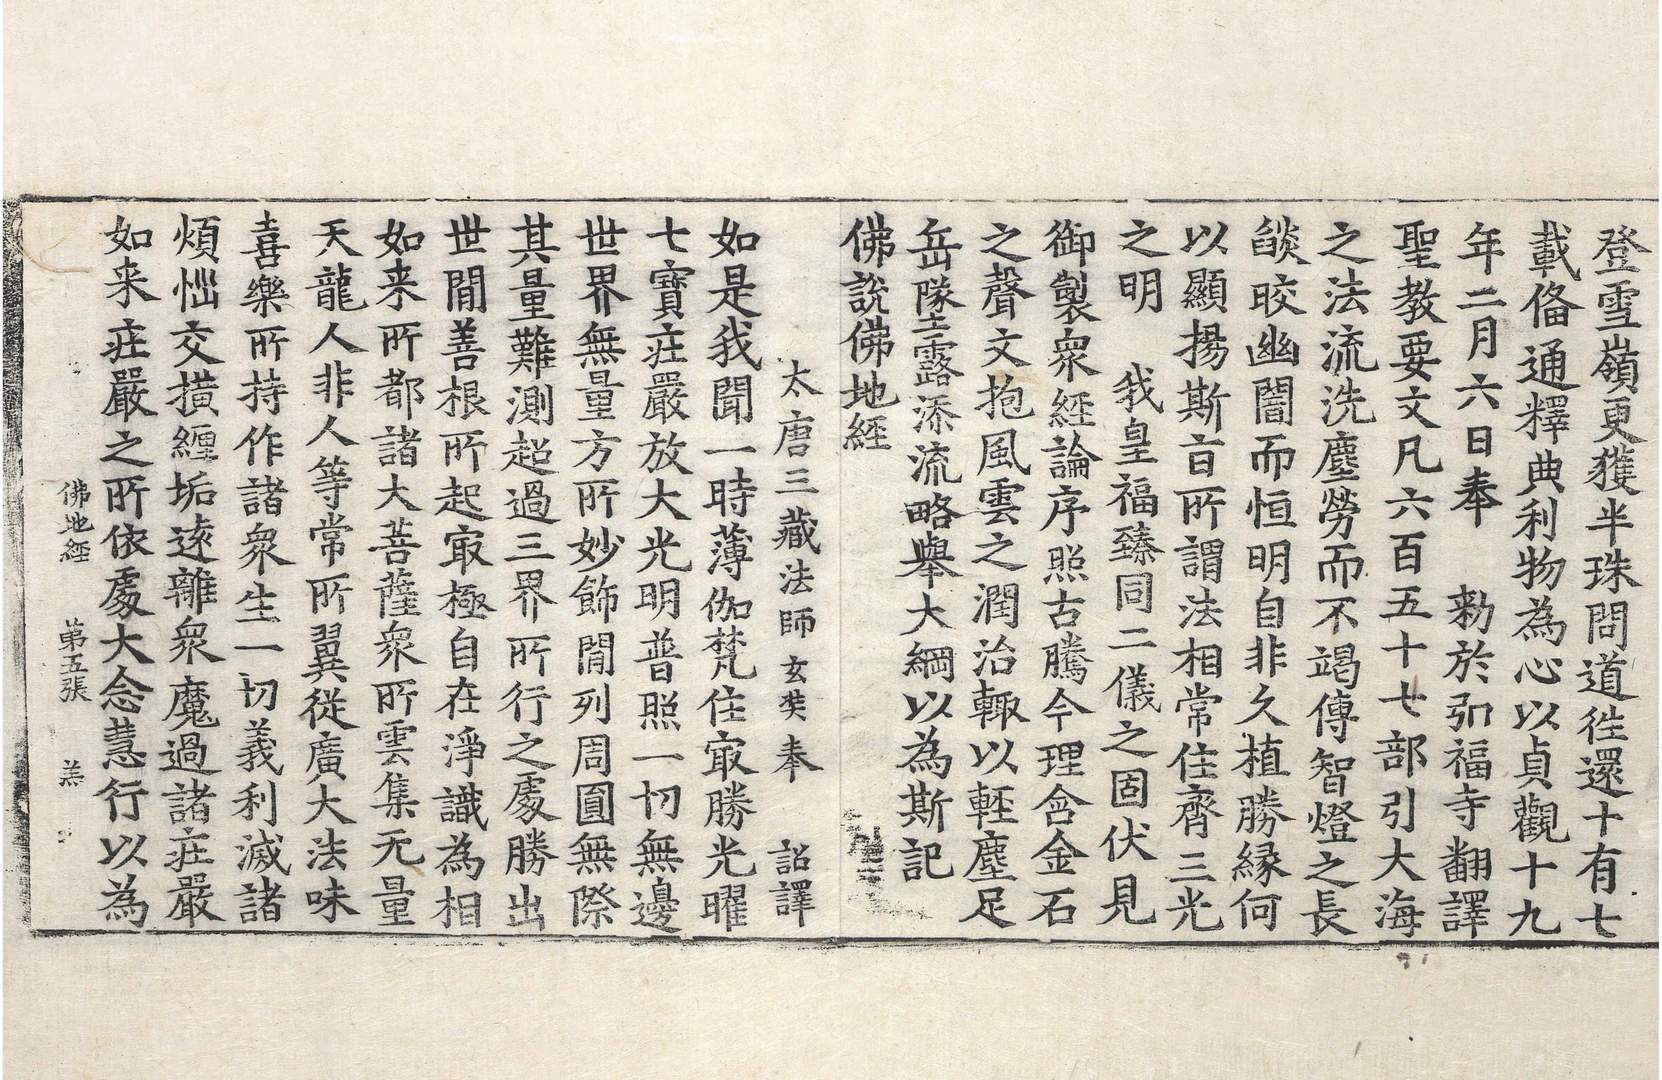 登雪嶺更獲半珠問道徃還十有七
載俻通釋典利物為心以貞觀十九
年二月六日奉　勑於弘福寺翻譯
聖教要文凡六百五十七部引大海
之法流洗塵勞而不竭傳智燈之長
燄皎幽闇而恒明自非久植勝緣何
以顯揚斯旨所謂法相常住齊三光
之明　我皇福臻同二儀之固伏見
御製衆經論序照古騰今理含金石
之聲文抱風雲之潤治輙以輕塵足
岳墜露添流略舉大綱以為斯記
佛說佛地經
太唐三藏法師玄奘奉　詔譯
如是我聞一時薄伽梵住㝡勝光曜
七寶庄嚴放大光明普照一切無邊
世界無量方所妙飾間列周圓無際
其量難測超過三界所行之處勝出
世間善根所起㝡極自在淨識為相
如来所都諸大菩薩衆所雲集无量
天龍人非人等常所翼從廣大法味
喜樂所持作諸衆生一切義利滅諸
煩惱交橫纏垢遠離衆魔過諸庄嚴
如来庄嚴之所依處大念慧行以為
佛地經　第五張　羔